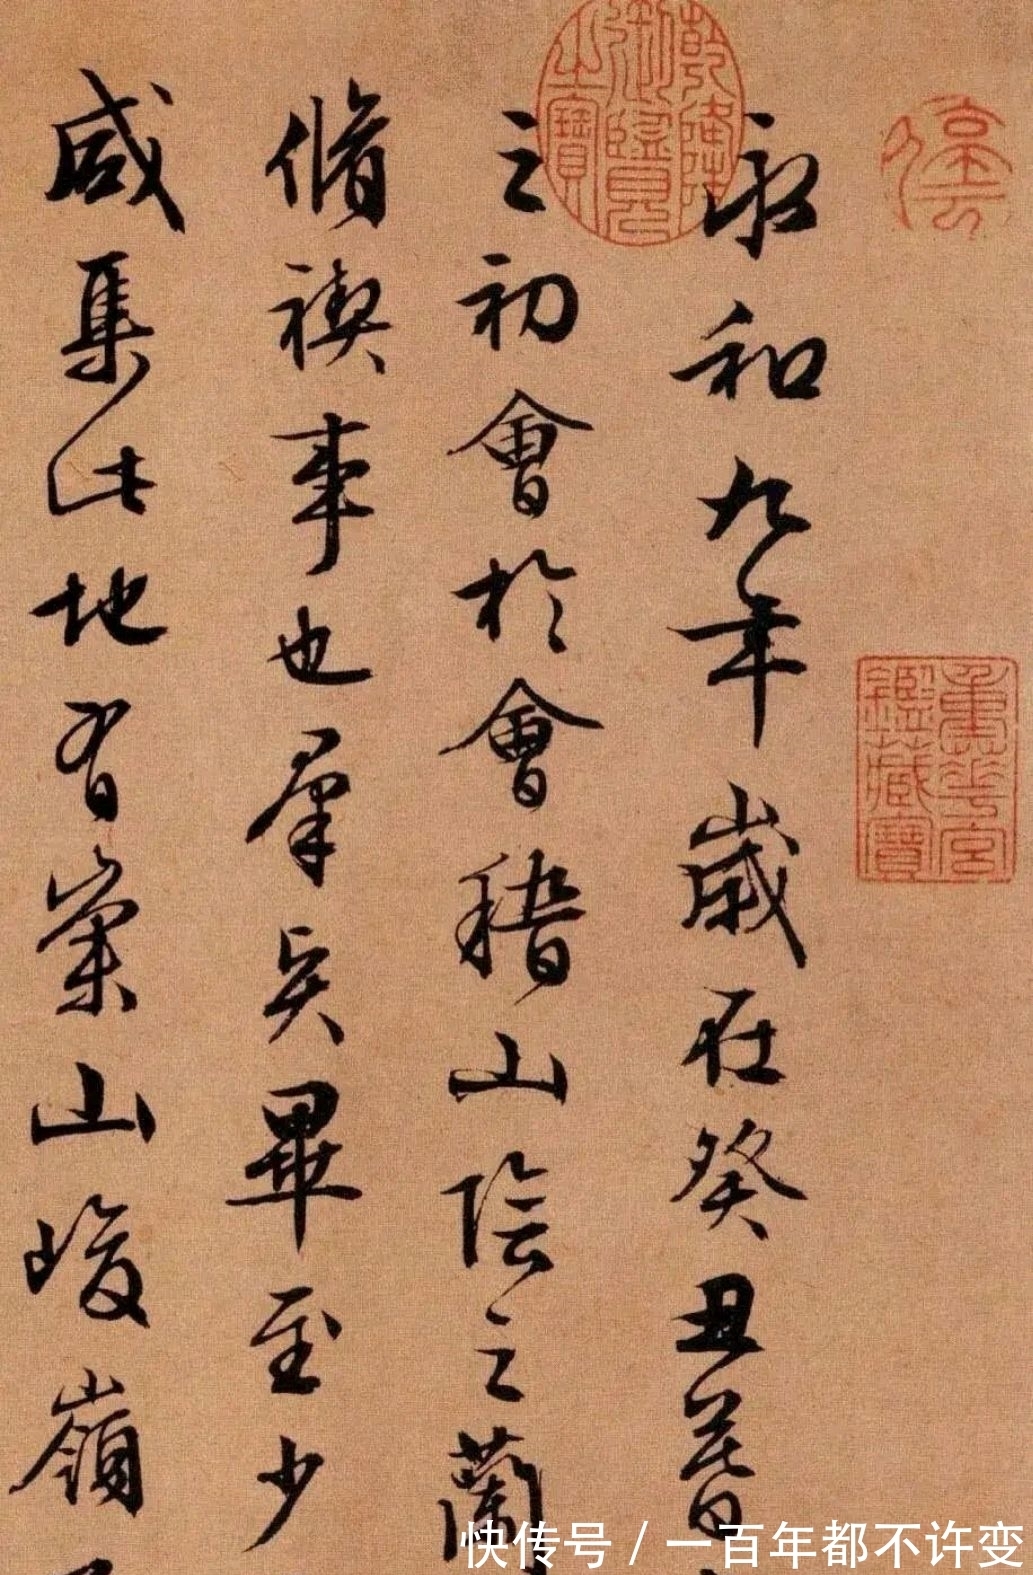 永和九年歲在癸丑暮
之初會於會稽山陰之蘭
脩禊事也羣賢畢至少
咸集此地有崇山峻嶺
乾隆御覽之寶
重華宮鑑藏寶
快传号 / 一百年都不许变